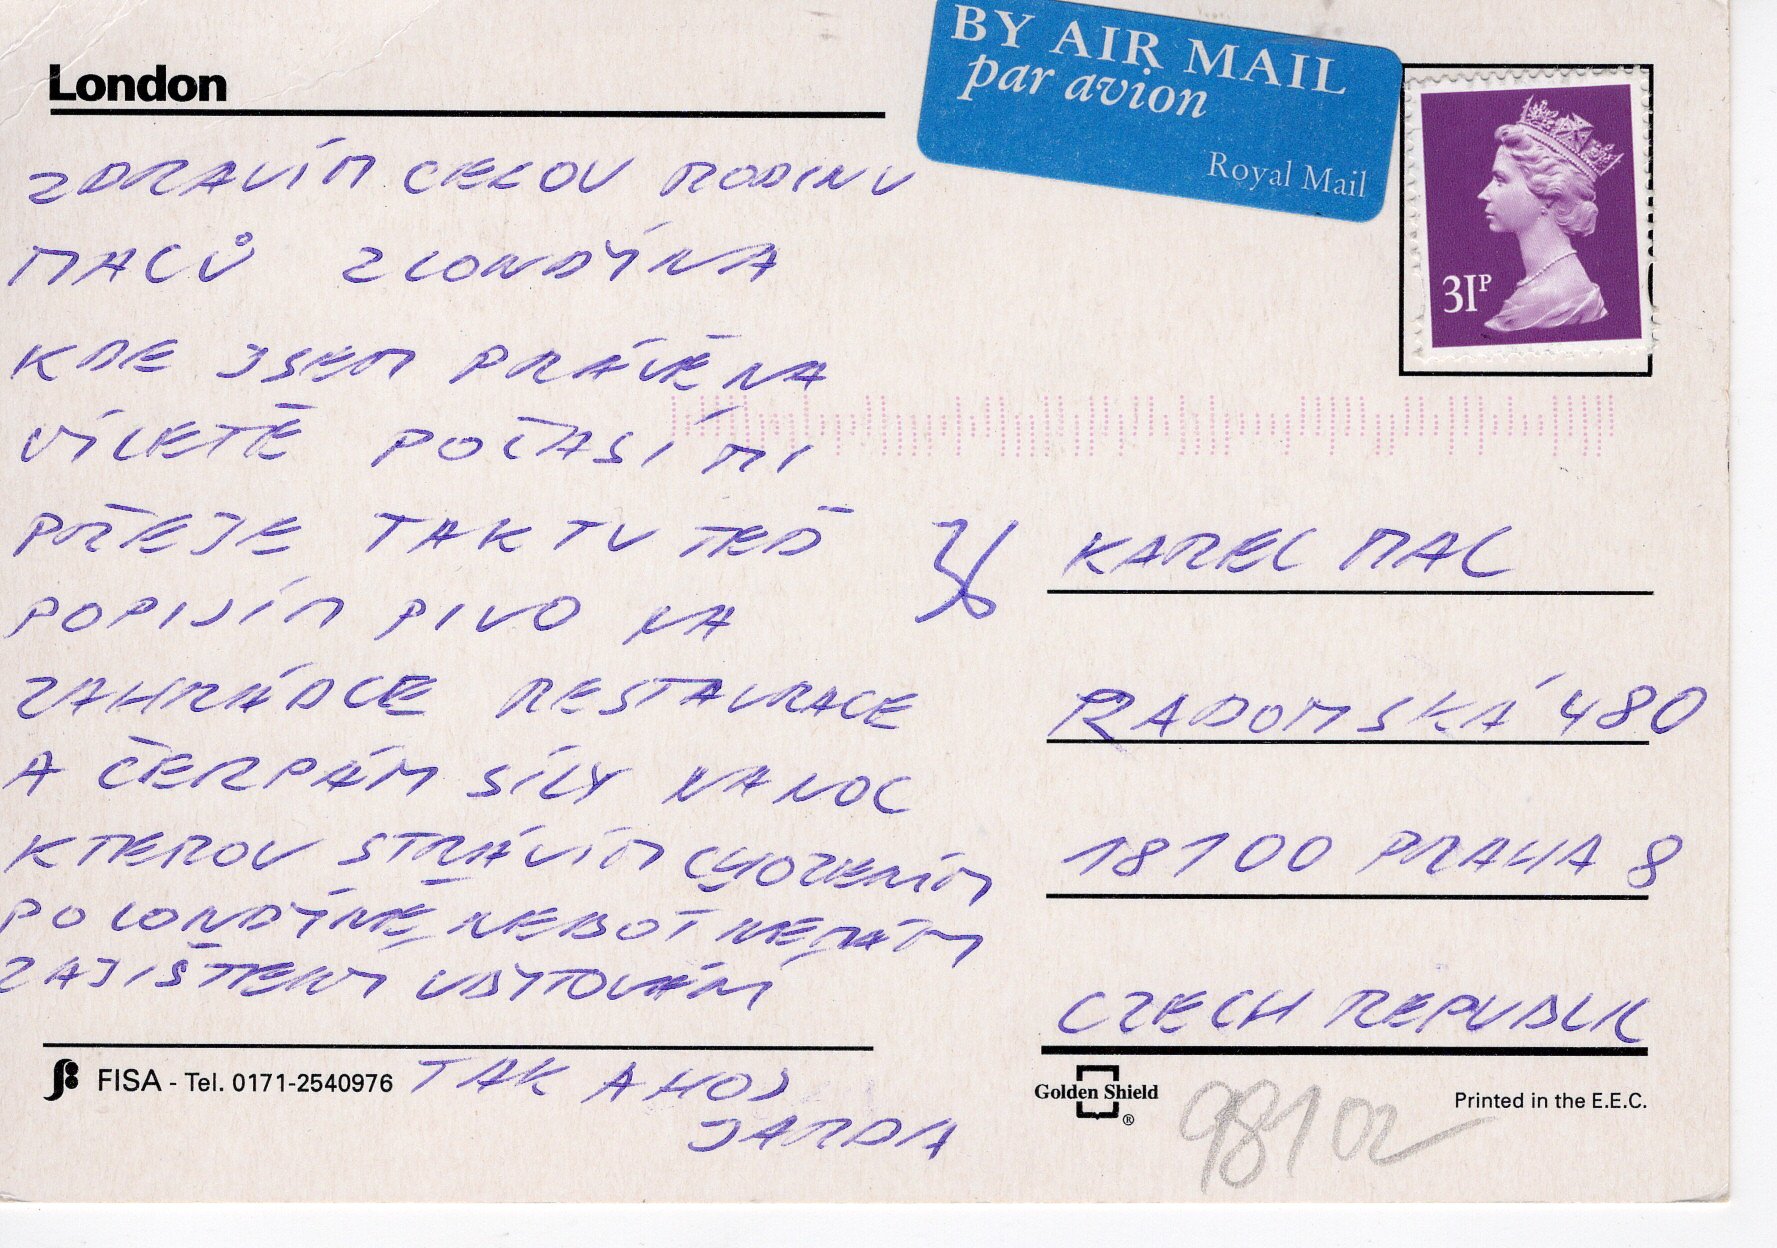 London
BY AIR MAIL
par avion
Royal Mail
31P
ZDRAVÍM CELOU RODINU
MACŮ Z LONDÝNA
KDE JSEM PRÁVĚ NA
VÍLETĚ POČASÍ MI
PŘEJE TAK TU TEĎ
POPIJÍM PIVO NA
ZAHRÁDCE RESTAURACE
A ČERPÁM SÍLY NA NOC
KTEROU STRÁVÍM CHOZENÍM
PO LONDÝNĚ, NEBOŤ NEMÁM
ZAJIŠTĚNÝ UBYTOVÁNÍ
TAK AHOJ
JARDA
KAREL MAC
RADOMSKÁ 480
18100 PRAHA 8
CZECH REPUBLIC
FISA - Tel. 0171-2540976
Golden Shield
®
Printed in the E.E.C.
98102